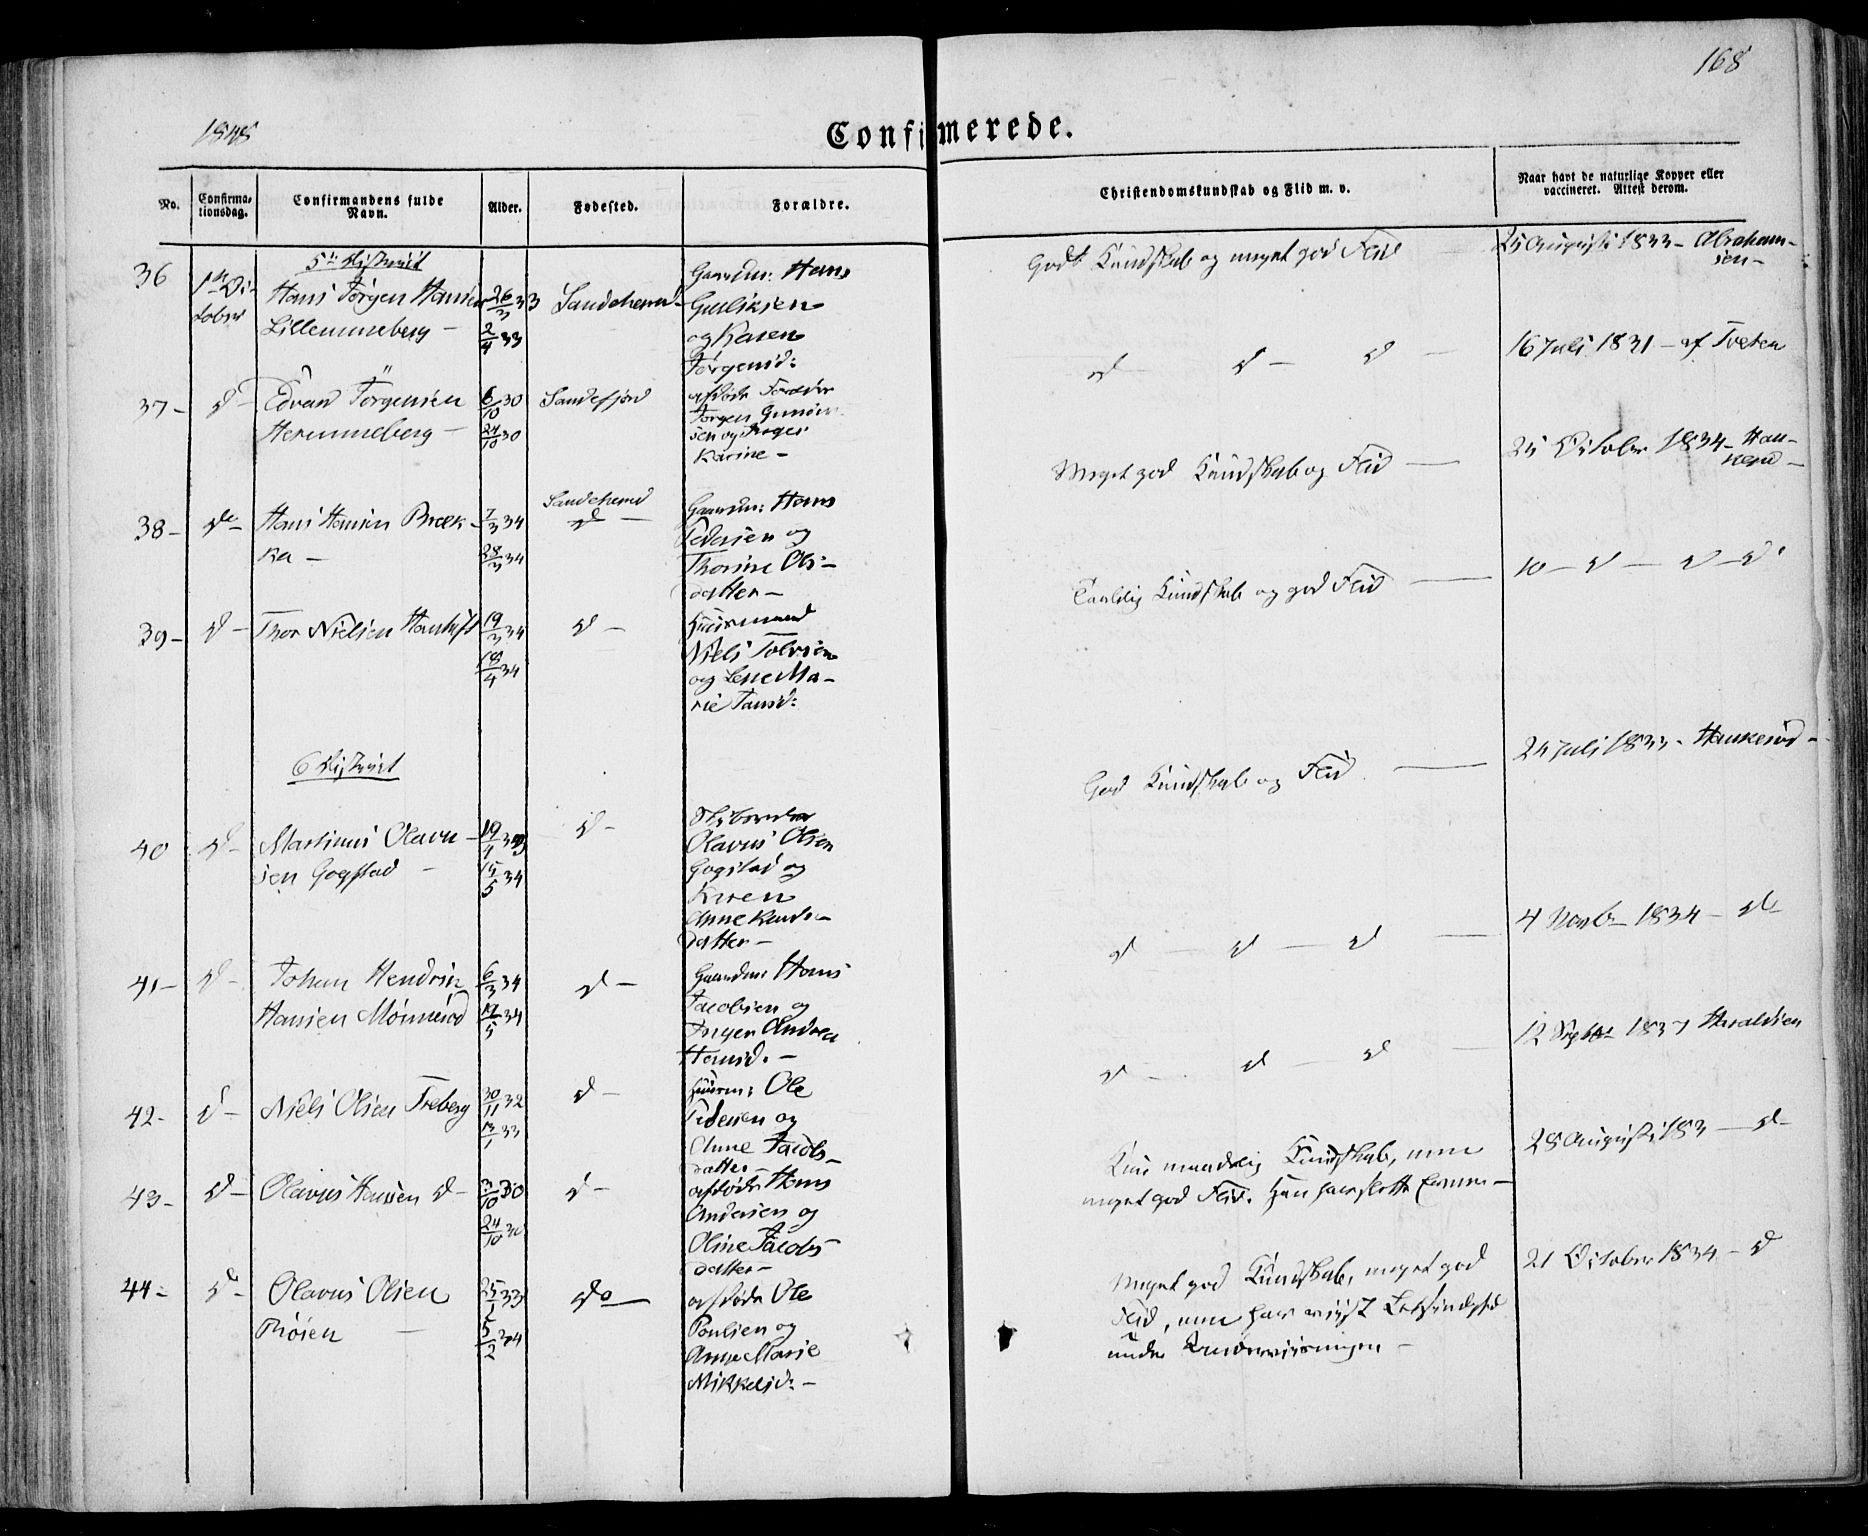 168
1848
Confirmerede.
No.
Confirma-
tionsdag.
Confirmandens fulde
Navn.
Alder.
Fødested.
Forældre.
Christendomskundskab og Flid m. v.
Naar havt de naturlige Kopper eller
vaccineret. Attest derom.
5te District
36
1ste Oc-
tober
Hans Jørgen Hansen
Lillemmeberg –
26/3 33
2/4 33
Sandeherred
Gaardm: Hans
Guliksen
og Karen
Jørgensd:
Godt Kundskab og meget god Flid
25 Augusti 1833 – Abraham-
sen –
37 –
d –
Edvard Jørgensen
Herummeberg –
6/10 30
24/10 30
Sandefjord
afdøde Forældre
Jørgen
sen og Inger
Karine –
d – d – d –
16 Juli 1831 – af Tveten
38 –
do –
Hans Hansen Bræk-
ka –
7/3 34
28/3 34
Sandeherred
d –
Gaardm: Hans
Pedersen og
Thorine Ols-
datter –
Meget god Kundskab og Flid –
25 October 1834 – Hau-
kerød –
39 –
d –
Thor Nielsen
19/3 34
18/4 34
d –
Huusmand
Niels Tolvsen
og Lene Ma-
rie Jansd:
Taalelig Kundskab og god Flid –
10 – d – d – d
6 District
40
d –
Martinus Olavu-
sen Gogstad –
19/4
15/5 34
d –
Olavus Olsen
Gogstad og
Karen
Anne
datter –
God Kundskab og Flid –
24 Juli 1833 – Haukerød –
41 –
d –
Johan Hendrik
Hansen
6/3 34
19/5 34
d –
Gaardm: Hans
Jacobsen og
Inger Andrea
Hansd. –
d – d – d –
4 Novbr 1834 – d –
42 –
d –
Niels Olsen Freberg
30/11 32
13/1 33
d –
Huusm: Ole
Pedersen og
Anne Jacobs-
datter –
d – d – d –
12 Septbr Haraldsen
43 –
d –
Olavus Hansen d –
3/10 30
24/10 30
d –
afdøde Hans
Andersen og
Oline Jacobs
datter –
Kun maadelig Kundskab, men
meget god Flid. Han har slette
28 Augusti 183 – d –
44 –
do
Olavus Olsen
Røsen –
25/1 33
5/2 34
do –
afdøde Ole
Poulsen og
Anne Marie
Mikkelsd: –
Meget god Kundskab, meget god
Flid, men har viist Letsindighed
under Underviisningen –
21 October 1834 – d